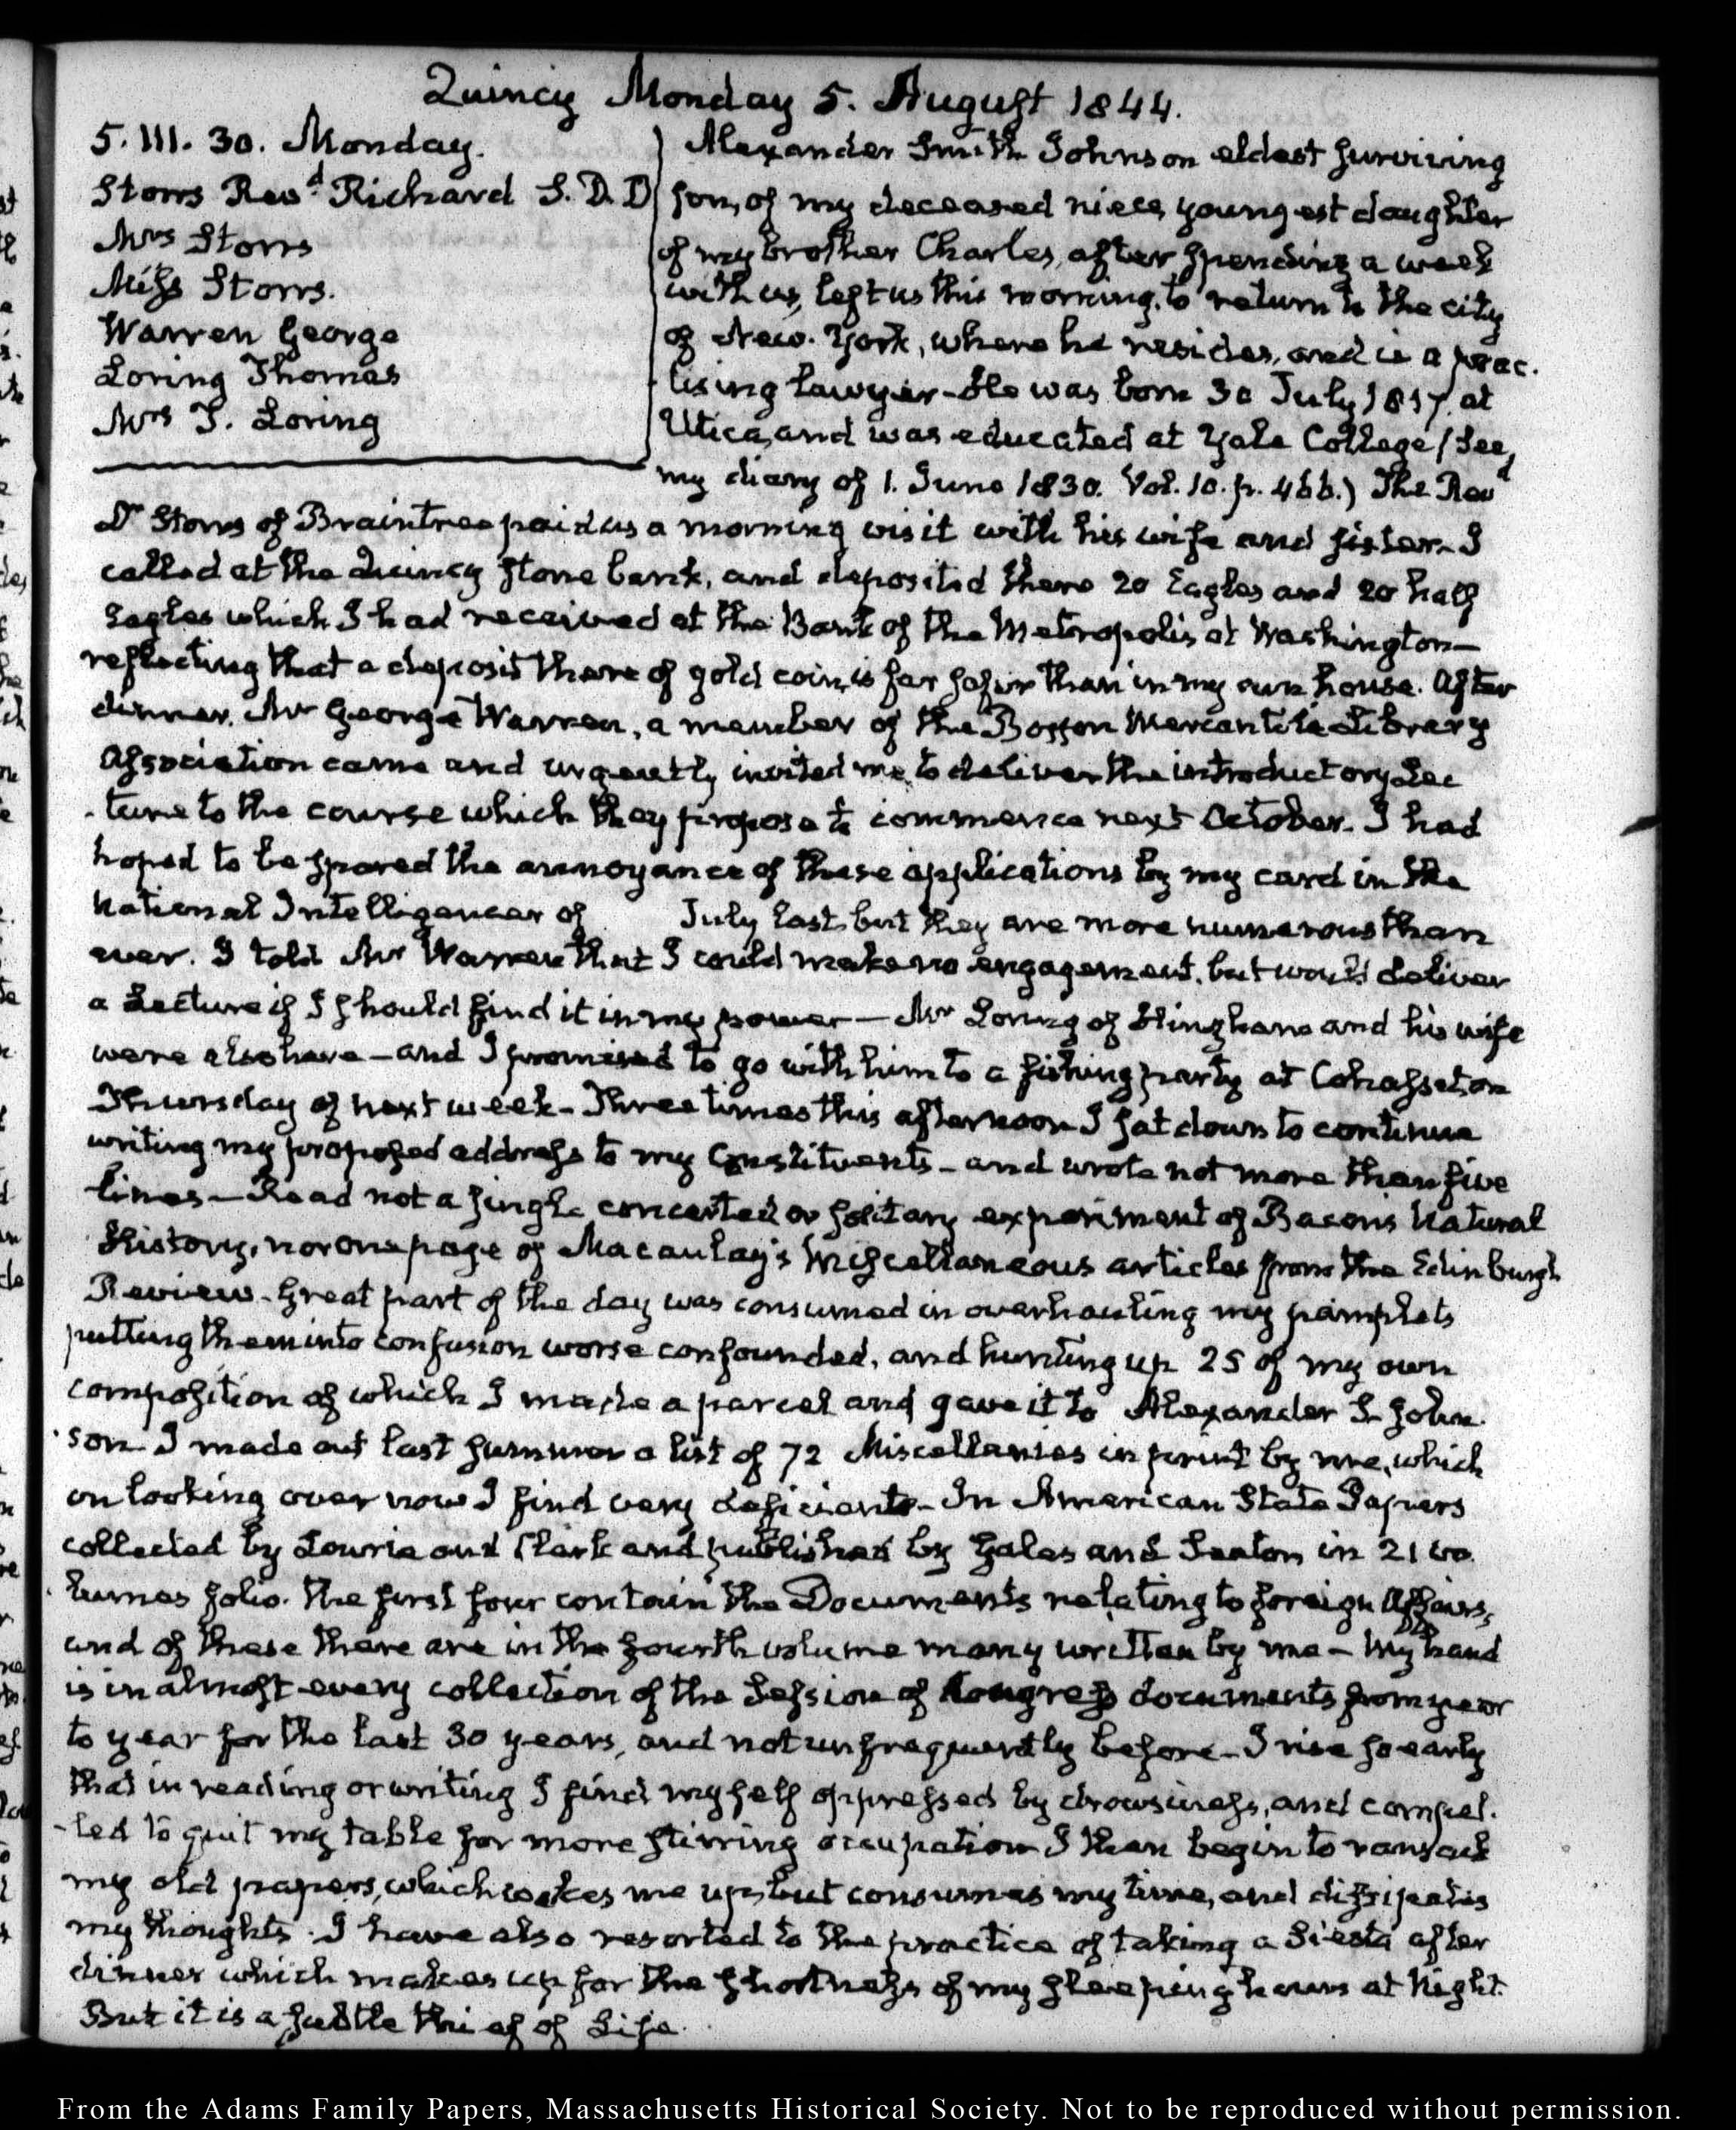 Quincy Monday 5. August 1844.
5. III. 30. Monday.
Storrs Revd Richard S. D. D
Mrs Storrs
Miss Storrs.
Warren George
Loring Thomas
Mrs T. Loring
Alexander Smith Johnson eldest surviving
son, of my deceased niece, youngest daughter
of my brother Charles, after spending a week
with us, left us this morning, to return to the city
of New-York, where he resides, and is a prac-
tising Lawyer - He was born 30 July 1817. at
Utica, and was educated at Yale College (see,
my diary of 1. June 1830. Vol. 10. p. 466.) The Revd
Dr Storrs of Braintree paid us a morning visit with his wife and sister - I
called at the Quincy Stone bank, and deposited there 20 Eagles and 20 half
Eagles which I had received at the Bank of the Metropolis at Washington —
reflecting that a deposit there of gold coin, is far safer than in my own house. After
dinner. Mr George Warren, a member of the Boston Mercantile Library
Association came and urgently invited me, to deliver the introductory Lec
-ture to the course which they propose to commence next October - I had
hoped to be spared the annoyance of these applications by my card in the
National Intelligencer of July last, but they are more numerous than
ever. I told Mr Warren that I could make no engagement, but would deliver
a Lecture if I should find it in my power — Mr Loring of Hingham and his wife
were also here - and I promised to go with him to a fishing party at Cohasset, on
Thursday of next week - Three times this afternoon I sat down to continue
writing my proposed address to my Constituents - and wrote not more than five
lines — Read not a single concerted or solitary experiment of Bacon's Natural
History, nor one page of Macaulay's Miscellaneous articles from the Edinburgh
Review - Great part of the day was consumed in overhauling my pamphlets
putting them into confusion worse confounded, and hunting up 25 of my own
composition of which I made a parcel and gave it to Alexander S. John-
-son I made out last summer a list of 72 Miscellanies in print by me, which
on looking over now I find very deficient - In American State Papers
collected by Lowrie and Clark and published by Gales and Seaton, in 21 vo-
-lumes folio. The first four contain the Documents relating to foreign Affairs,
and of these there are in the fourth volume many written by me - My hand
is in almost every collection of the Session of Congress documents from year
to year for the last 30 years, and not unfrequently before - I rise so early
that in reading or writing I find myself oppressed by drowsiness, and compel-
-led to quit my table for more stirring occupation I then begin to ransack
my old papers, which wakes me up, but consumes my time, and dissipates
my thoughts. I have also resorted to the practice of taking a Siesta after
dinner which makes up for the shortness of my sleeping hours at Night.
But it is a subtle thief of Life.
From the Adams Family Papers, Massachusetts Historical Society. Not to be reproduced without permission.